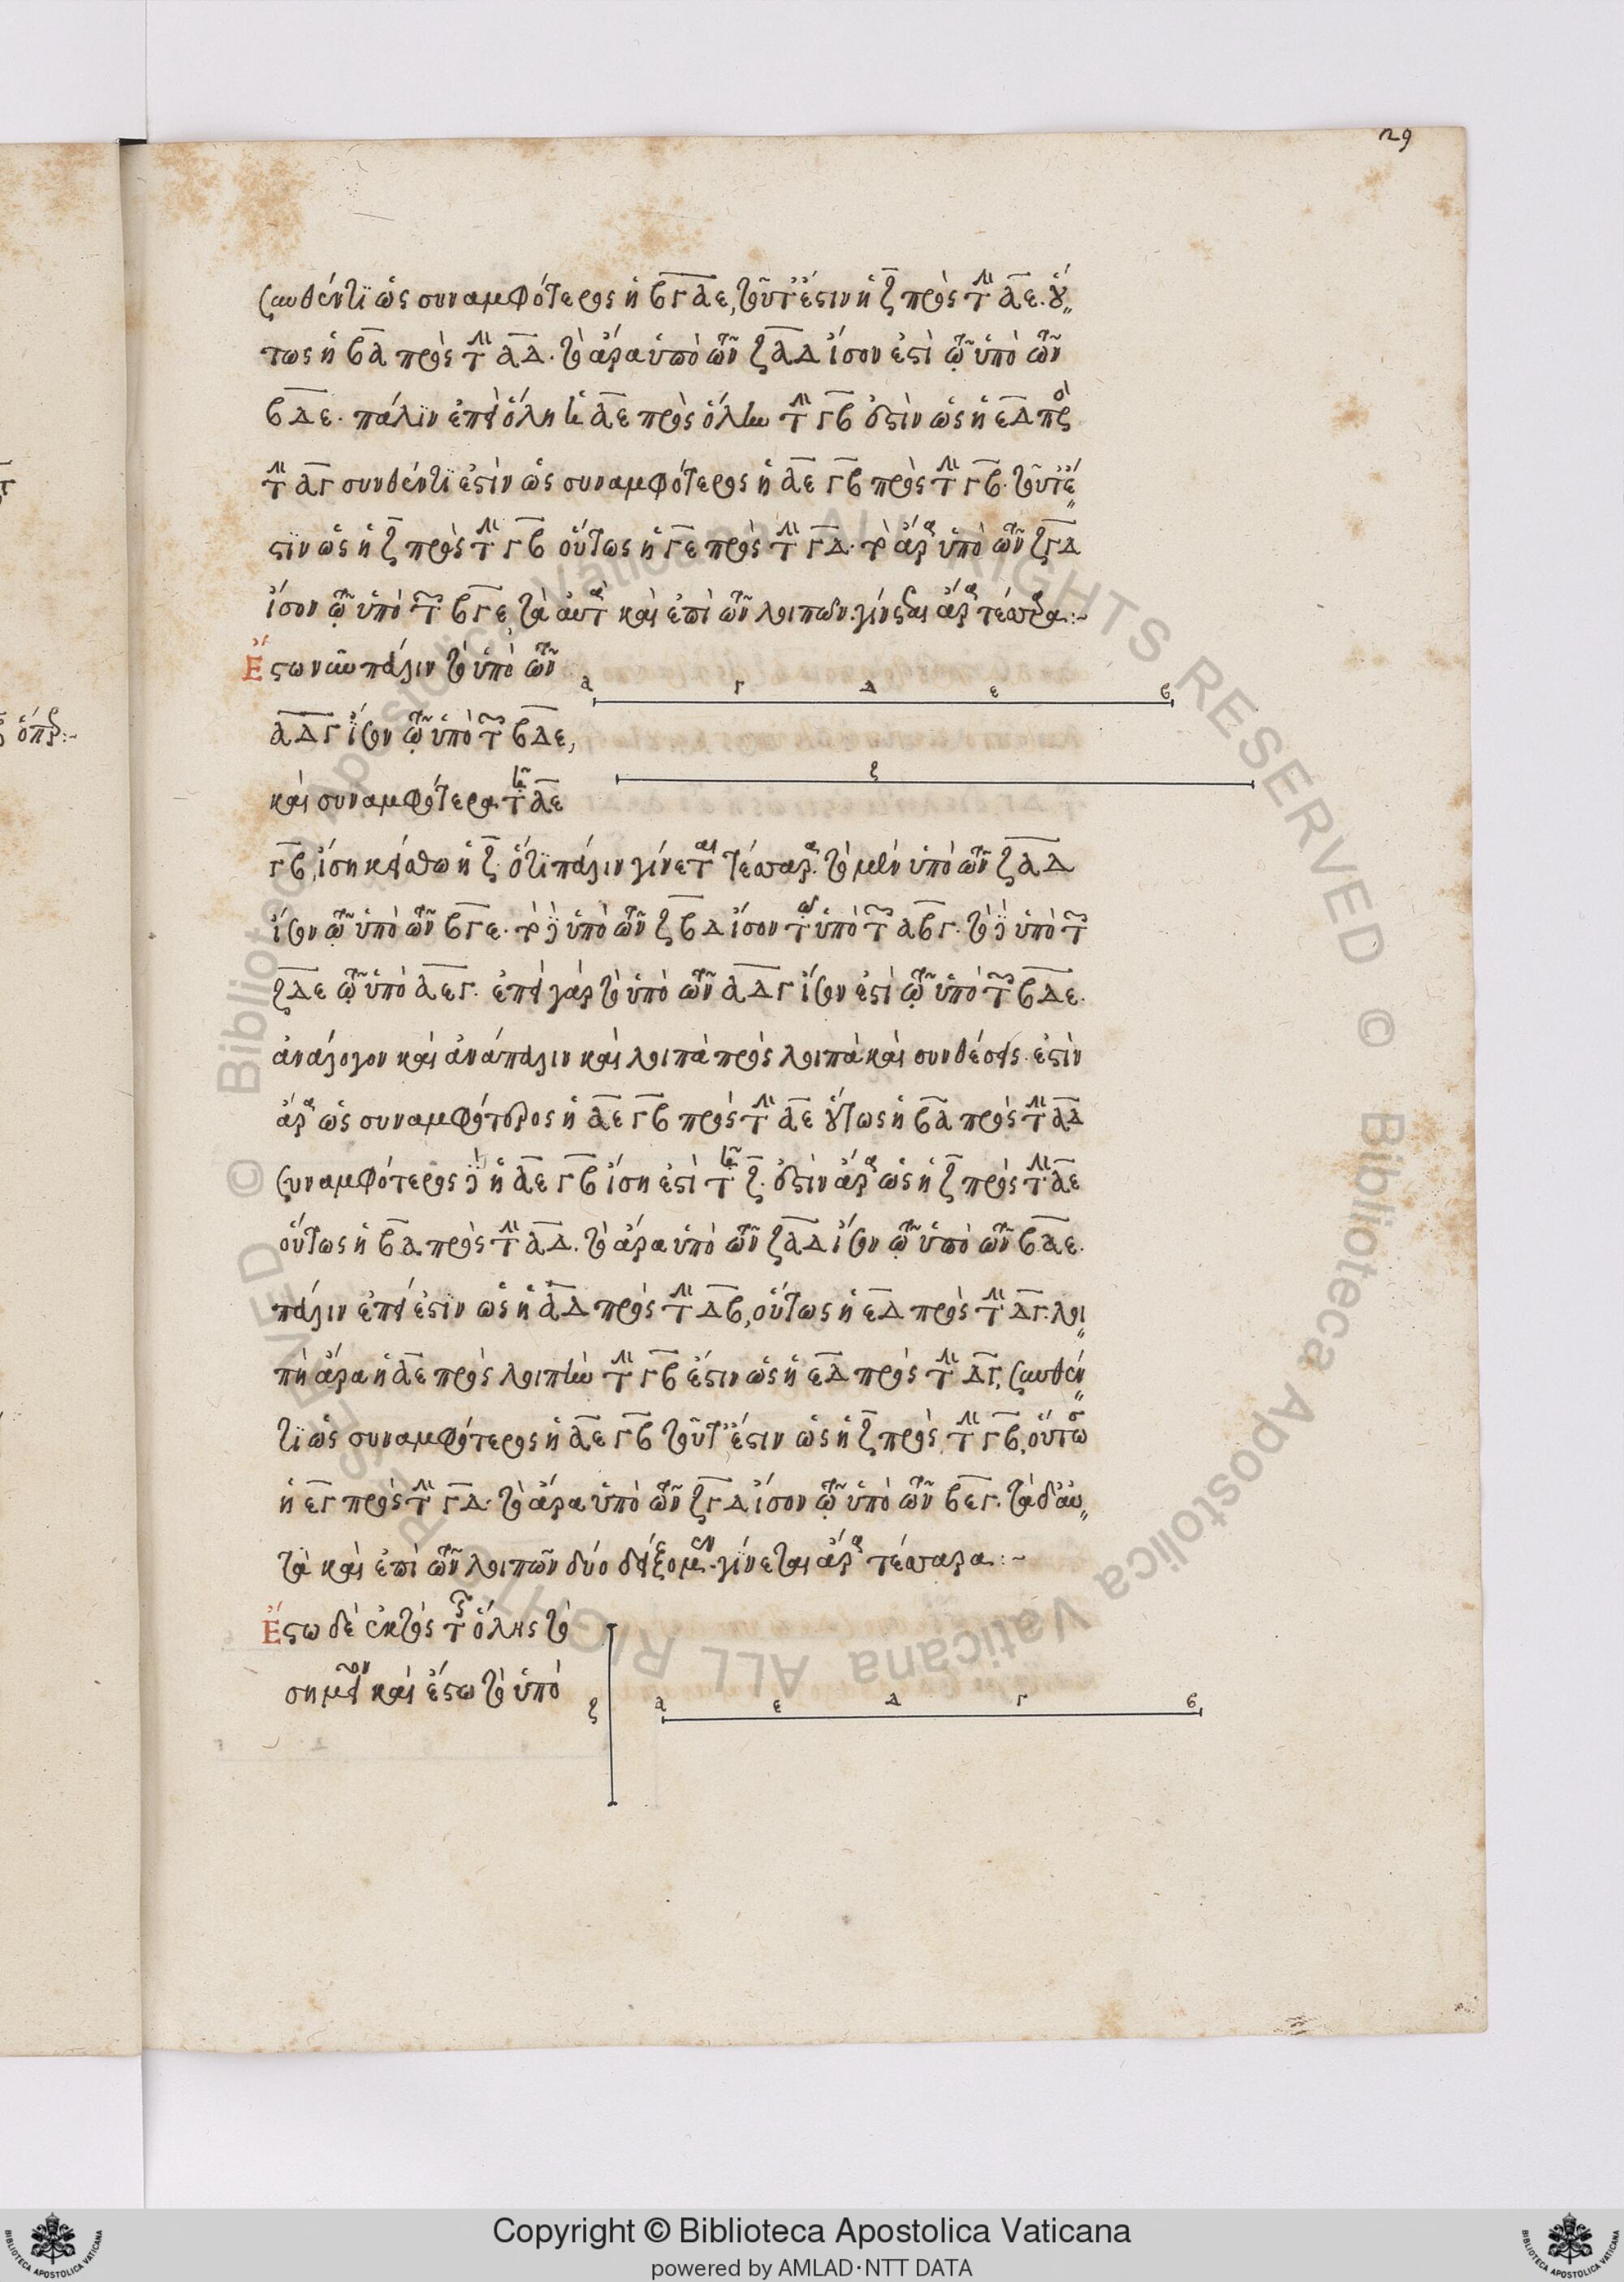 29
συνθέντι ὡς συναμφότερος ἡ βγ αε, τουτέστιν ἡ ζ πρὸς τὴν αε. οὕ
τως ἡ βα πρὸς τὴν αδ. τὸ ἄρα ὑπὸ τῶν ζ αδ ἴσον ἐστὶ τῷ ὑπὸ τῶν
β δε. πάλιν ἐπεὶ ὅλη ἡ αε πρὸς ὅλην τὴν γβ ἐστὶν ὡς ἡ εδ πρὸς
τὴν δγ συνθέντι ἐστὶν ὡς συναμφότερος ἡ αε γβ πρὸς τὴν γβ. τουτέ
στιν ὡς ἡ ζ πρὸς τὴν γβ οὕτως ἡ γε πρὸς τὴν γδ. τὸ ἄρα ὑπὸ τῶν ζ γδ
ἴσον τῷ ὑπὸ τῶν βγε, τὰ αὐτὰ καὶ ἐπὶ τῶν λοιπῶν. γίνεται ἄρα τέσσαρα:~
Ἔστω νῦν πάλιν τὸ ὑπὸ τῶν
αδγ ἴσον τῷ ὑπὸ τῶν βδε,
καὶ συναμφότερα τῇ αε
γβ, ἴση κείσθω ἡ ζ. ὅτι πάλιν γίνεται τέσσαρα. τὸ μὲν ὑπὸ τῶν ζ αδ
ἴσον τῷ ὑπὸ τῶν βγε. τὸ δὲ ὑπὸ τῶν ζ βδ ἴσον τῷ ὑπὸ τῶν αβγ. τὸ δὲ ὑπὸ τῶν
ζ δε τῷ ὑπὸ αεγ. ἐπεὶ γὰρ τὸ ὑπὸ τῶν αδγ ἴσον ἐστὶ τῷ ὑπὸ τῶν βδε.
ἀνάλογον καὶ ἀνάπαλιν καὶ λοιπὰ πρὸς λοιπὰ καὶ συνθέσεις. ἐστὶν
ἄρα ὡς συναμφότερος ἡ αε γβ πρὸς τὴν αε οὕτως ἡ βα πρὸς τὴν αδ
συναμφότερος δὲ ἡ αε γβ ἴση ἐστὶ τῇ ζ. ἐστὶν ἄρα ὡς ἡ ζ πρὸς τὴν αε
οὕτως ἡ βα πρὸς τὴν αδ. τὸ ἄρα ὑπὸ τῶν ζ αδ ἴσον τῷ ὑπὸ τῶν βαε.
πάλιν ἐπεὶ ἐστιν ὡς ἡ αδ πρὸς τὴν δβ, οὕτως ἡ εδ πρὸς τὴν δγ. λοι
πὴ ἄρα ἡ αε πρὸς λοιπὴν τὴν γβ ἐστιν ὡς ἡ εδ πρὸς τὴν δγ, συνθέν
τι ὡς συναμφότερος ἡ αε γβ τουτ' ἔστιν ὡς ἡ ζ πρὸς τὴν γβ, οὕτως
ἡ εγ πρὸς τὴν γδ. τὸ ἄρα ὑπὸ τῶν ζ γδ ἴσον τῷ ὑπὸ τῶν βεγ. τὰ δ' αὐ
τὰ καὶ ἐπὶ τῶν λοιπῶν δύο δείξομεν. γίνεται ἄρα τέσσαρα:~
Ἔστω δὲ ἐκτὸς τῆς ὅλης τὸ
σημεῖον καὶ ἔστω τὸ ὑπὸ
α γ δ ε β
ζ
ζ
α ε δ γ β
Copyright © Biblioteca Apostolica Vaticana
powered by AMLAD·NTT DATA
© Biblioteca Apostolica Vaticana ALL RIGHTS RESERVED
© Biblioteca Apostolica Vaticana ALL RIGHTS RESERVED